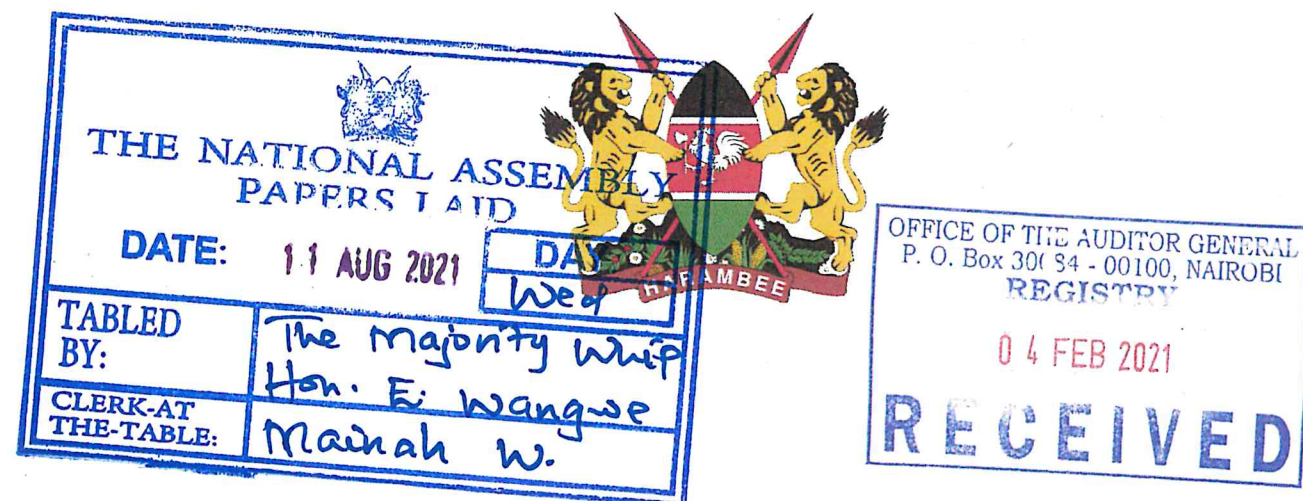 THE NATIONAL ASSEMBLY
PAPERS LAID
DATE: 11 AUG 2021
DAY
Wed
TABLED
BY:
The Majority Whip
Hon. E. Wangwe
CLERK-AT
THE-TABLE:
Mainah W.
HARAMBEE
OFFICE OF THE AUDITOR GENERAL
P. O. Box 30084 - 00100, NAIROBI
REGISTRY
04 FEB 2021
RECEIVED